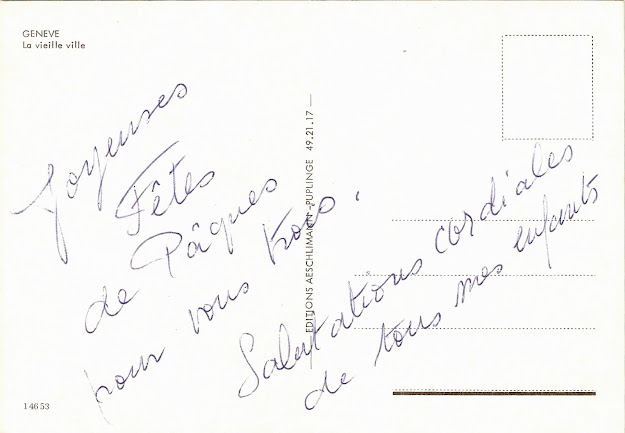 GENEVE
La vieille ville
Joyeuses
Fêtes
de Pâques
pour vous trois.
Salutations cordiales
de tous mes enfants
EDITIONS AESCHLIMANN - PUPLINGE 49.21.17
14653